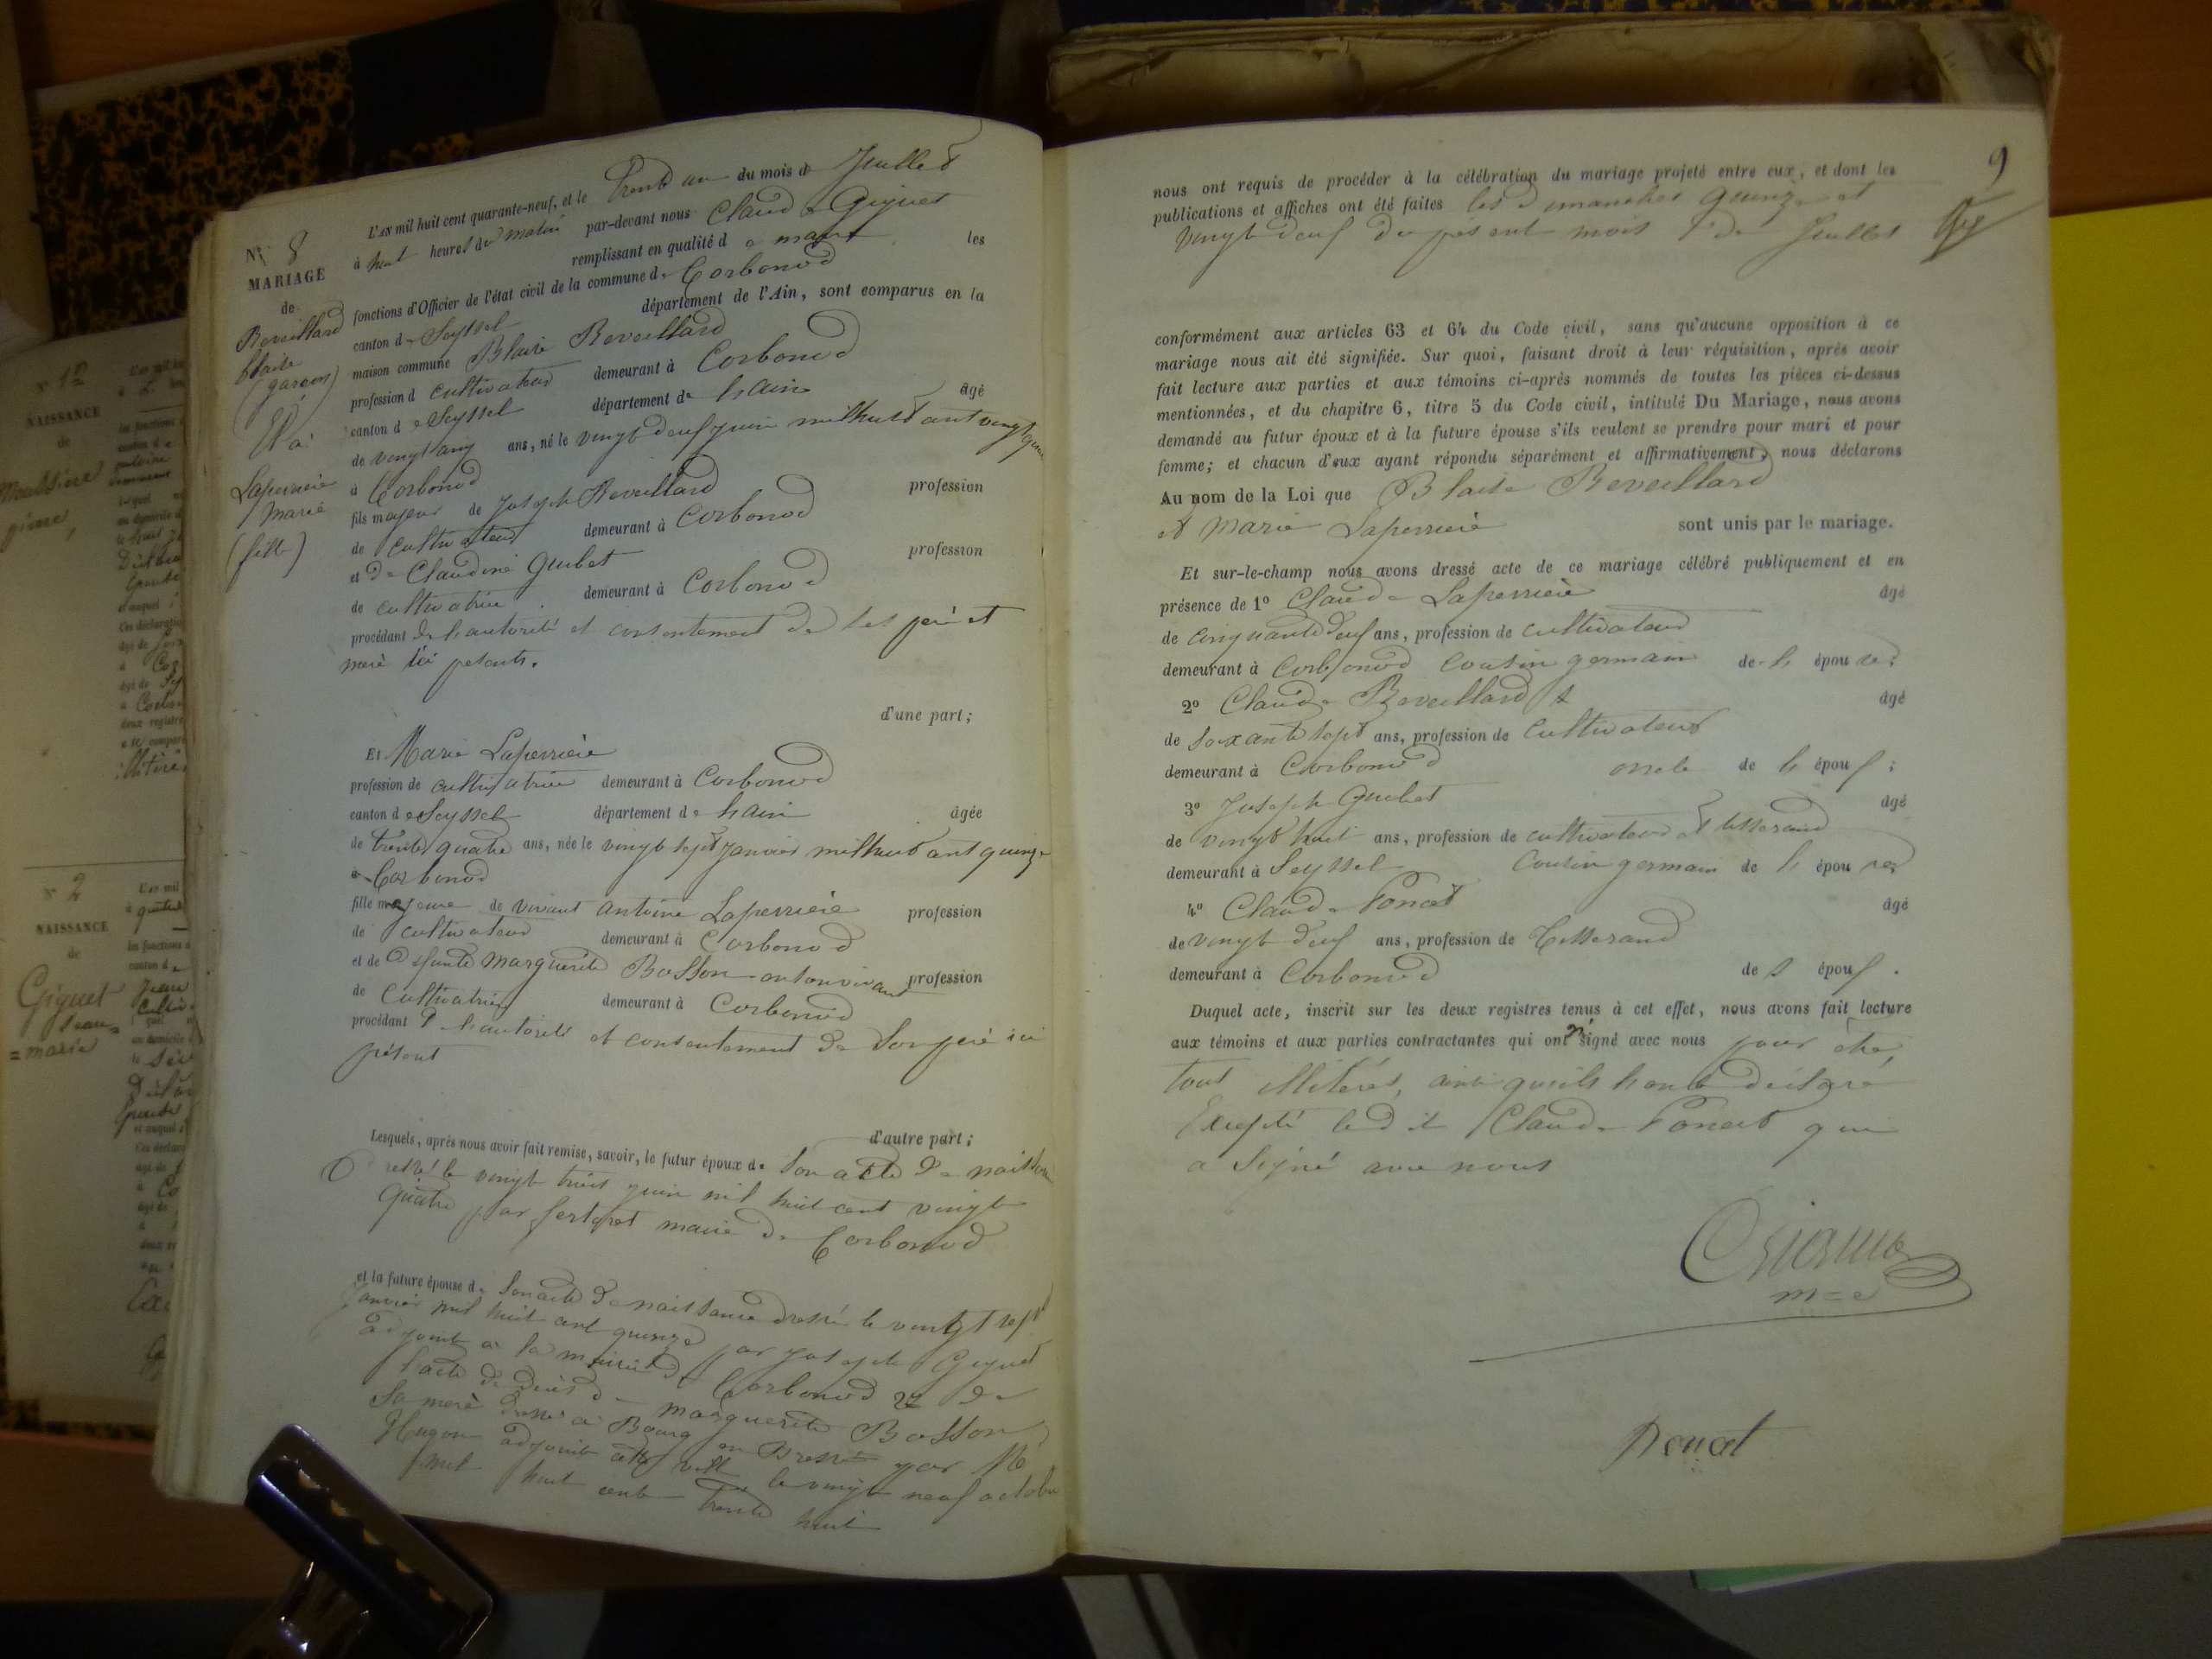 N° 8
MARIAGE
de
Reveillard
Blaise
(garçon)
Et a
Laperrière
Marie
(fille)
L'an mil huit cent quarante-neuf, et le Trente un du mois de Juillet
à huit heures du matin par-devant nous Claude Giguet
remplissant en qualité de maire les
fonctions d'Officier de l'état civil de la commune de Corbonod
canton de Seyssel département de l'Ain, sont comparus en la
maison commune Blaise Reveillard
profession de cultivateur demeurant à Corbonod
canton de Seyssel département de l'ain âgé
de vingt cinq ans, né le vingt deux juin mil huit cent vingt quatre
à Corbonod
fils majeur de Joseph Reveillard profession
de cultivateur demeurant à Corbonod
et de Claudine Guibet profession
de cultivatrice demeurant à Corbonod
procédant de l'autorité et consentement de ses père et
mère ici présents.
d'une part;
Et Marie Laperrière
profession de cultivatrice demeurant à Corbonod
canton de Seyssel département de l'ain âgée
de trente quatre ans, née le vingt sept janvier mil huit cent quinze
à Corbonod
fille majeure de vivant antoine Laperrière profession
de cultivateur demeurant à Corbonod
et de défunte Marguerite Bosson en son vivant profession
de cultivatrice demeurant à Corbonod
procédant de l'autorité et consentement de son père ici
présent
d'autre part;
Lesquels, après nous avoir fait remise, savoir, le futur époux de son acte de naissance
Dressé le vingt trois juin mil huit cent vingt
quatre par fertoret maire de Corbonod
et la future épouse de son acte de naissance dressé le vingt sept
janvier mil huit cent quinze par joseph Giguet
adjoint à la mairie de Corbonod 2° de
l'acte de décès de marguerite Bosson
sa mère dressé à Bourg en Bresse par Mr
Hugon adjoint cette ville le vingt neuf octobre
mil huit cent trente huit
9
nous ont requis de procéder à la célébration du mariage projeté entre eux, et dont les
publications et affiches ont été faites les dimanches quinze et
vingt deux du présent mois de Juillet
conformément aux articles 63 et 64 du Code civil, sans qu'aucune opposition à ce
mariage nous ait été signifiée. Sur quoi, faisant droit à leur réquisition, après avoir
fait lecture aux parties et aux témoins ci-après nommés de toutes les pièces ci-dessus
mentionnées, et du chapitre 6, titre 5 du Code civil, intitulé Du Mariage, nous avons
demandé au futur époux et à la future épouse s'ils veulent se prendre pour mari et pour
femme; et chacun d'eux ayant répondu séparément et affirmativement, nous déclarons
Au nom de la Loi que Blaise Reveillard
et Marie Laperrière sont unis par le mariage.
Et sur-le-champ nous avons dressé acte de ce mariage célébré publiquement et en
présence de 1° Claude Laperrière âgé
de cinquante deux ans, profession de cultivateur
demeurant à Corbonod cousin germain de l'épouse;
2° Claude Reveillard âgé
de soixante sept ans, profession de cultivateur
demeurant à Corbonod oncle de l'époux;
3° Joseph Guibet âgé
de vingt huit ans, profession de cultivateur et tisserand
demeurant à Seyssel cousin germain de l'épou
4° Claude Poncet âgé
de vingt deux ans, profession de Tisserand
demeurant à Corbonod de l'époux.
Duquel acte, inscrit sur les deux registres tenus à cet effet, nous avons fait lecture
aux témoins et aux parties contractantes qui ont signé avec nous pour être
tous illitérés, ainsi qu'ils l'ont déclaré
Excepté ledit Claude Poncet qui
a signé avec nous
m=e
Poncet
N° 12
NAISSANCE
de
N° 2
NAISSANCE
de
Giguet
Jean=
=marie